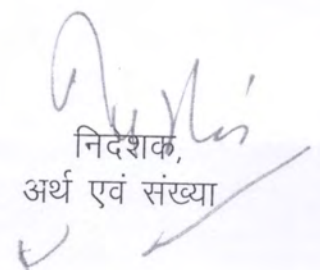 निदेशक,
अर्थ एवं संख्या